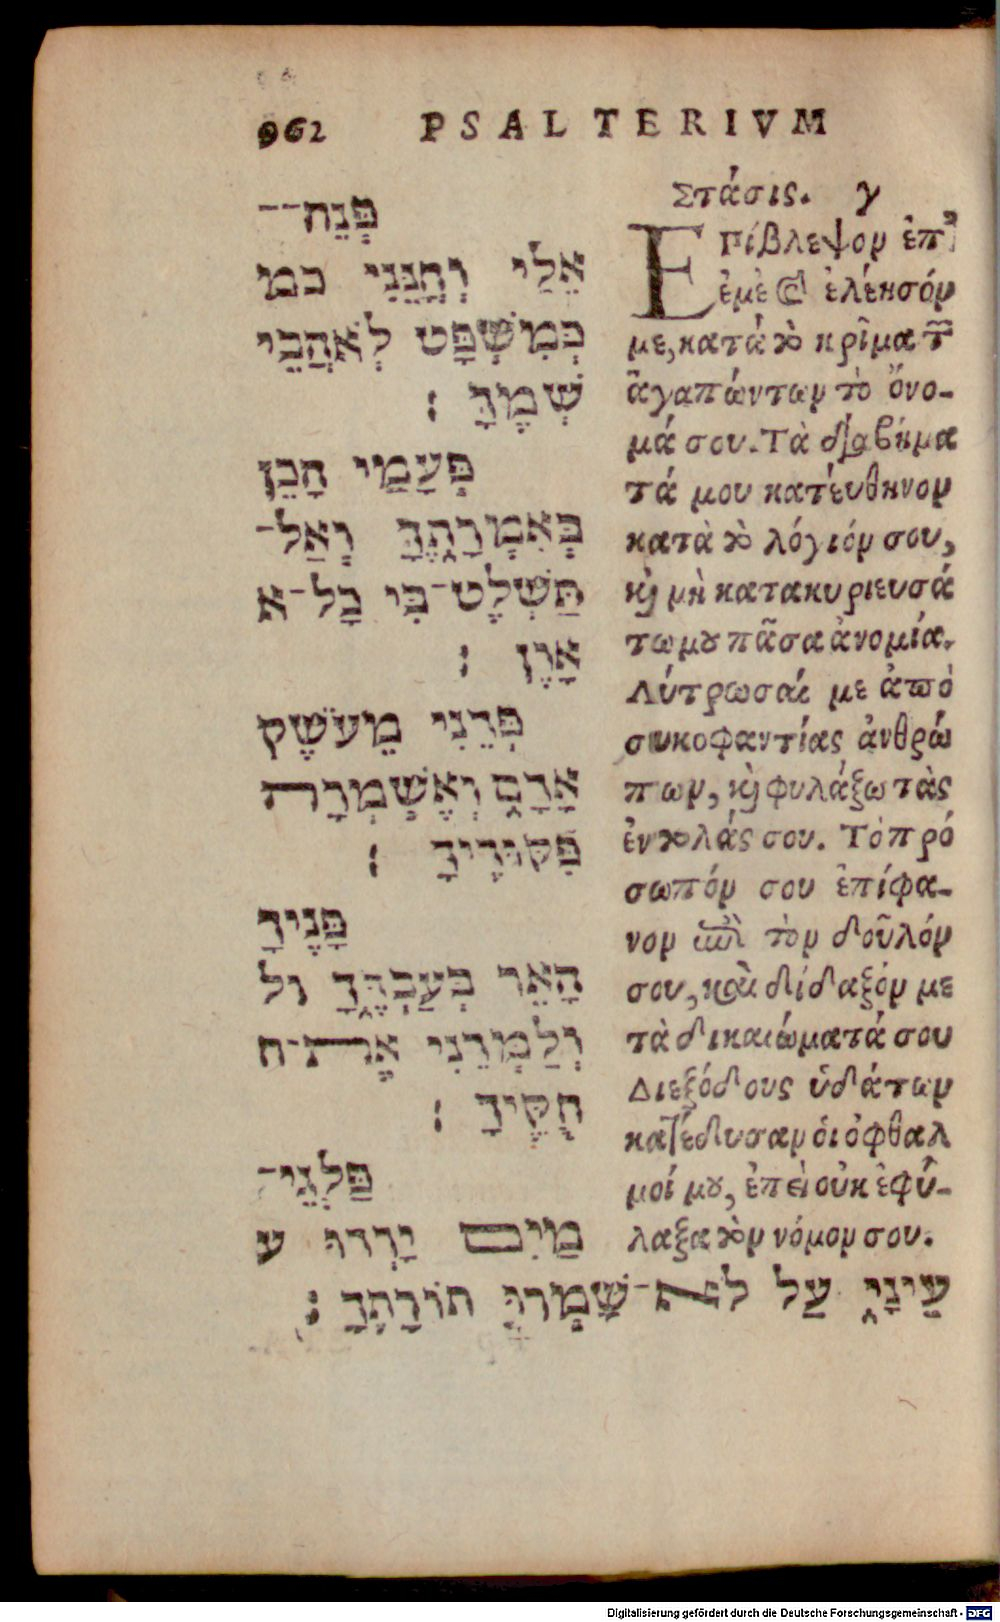 962 PSALTERIVM
פְּנֵה־־
אֵלַי וְחָנֵּנִי כמ
כְּמִשְׁפָּט לְאֹהֲבֵי
שְׁמֶךָ :
פְּעָמַי הָכֵן
בְּאִמְרָתֶךָ וְאַל־
תַּשְׁלֶט־בִּי כָל־א
אָוֶן :
פְּדֵנִי מֵעֹשֶׁק
אָדָם וְאֶשְׁמְרָה
פִּקּוּדֶיךָ :
פָּנֶיךָ
הָאֵר בְּעַבְדֶּךָ ול
וְלַמְּדֵנִי אֶת־ח
חֻקֶּיךָ :
פַּלְגֵי־
מַיִם יָרְדוּ ע
עֵינָי עַל לֹא־שָׁמְרוּ תוֹרָתֶךָ :
Στάσις. γ
ΕΠίβλεψον ἐπ᾽
ἐμὲ καὶ ἐλέησόν
με, κατὰ τὸ κρῖμα τῶν
ἀγαπώντων τὸ ὄνο-
μά σου. Τὰ διαβήμα
τά μου κατέυθηνον
κατὰ τὸ λόγιόν σου,
καὶ μὴ κατακυριευσά
τω μου πᾶσα ἀνομία.
Λύτρωσαί με ἀπὸ
συκοφαντίας ἀνθρώ
πων, καὶ φυλάξω τὰς
ἐντολάς σου. Τὸ πρό
σωπόν σου ἐπίφα-
νον ἐπὶ τὸν δοῦλόν
σου, καὶ δίδαξόν με
τὰ δικαιώματά σου
Διεξόδους ὑδάτων
κατέδυσαν οἱ ὀφθαλ
μοί μου, ἐπεὶ οὐκ ἐφύ-
λαξα τὸν νόμον σου.
Digitalisierung gefördert durch die Deutsche Forschungsgemeinschaft - DFG